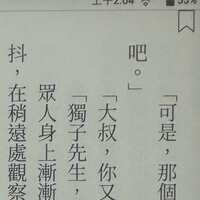 「可是，那個
吧。」
「大叔，你又
「獨子先生，
眾人身上漸漸
抖，在稍遠處觀察